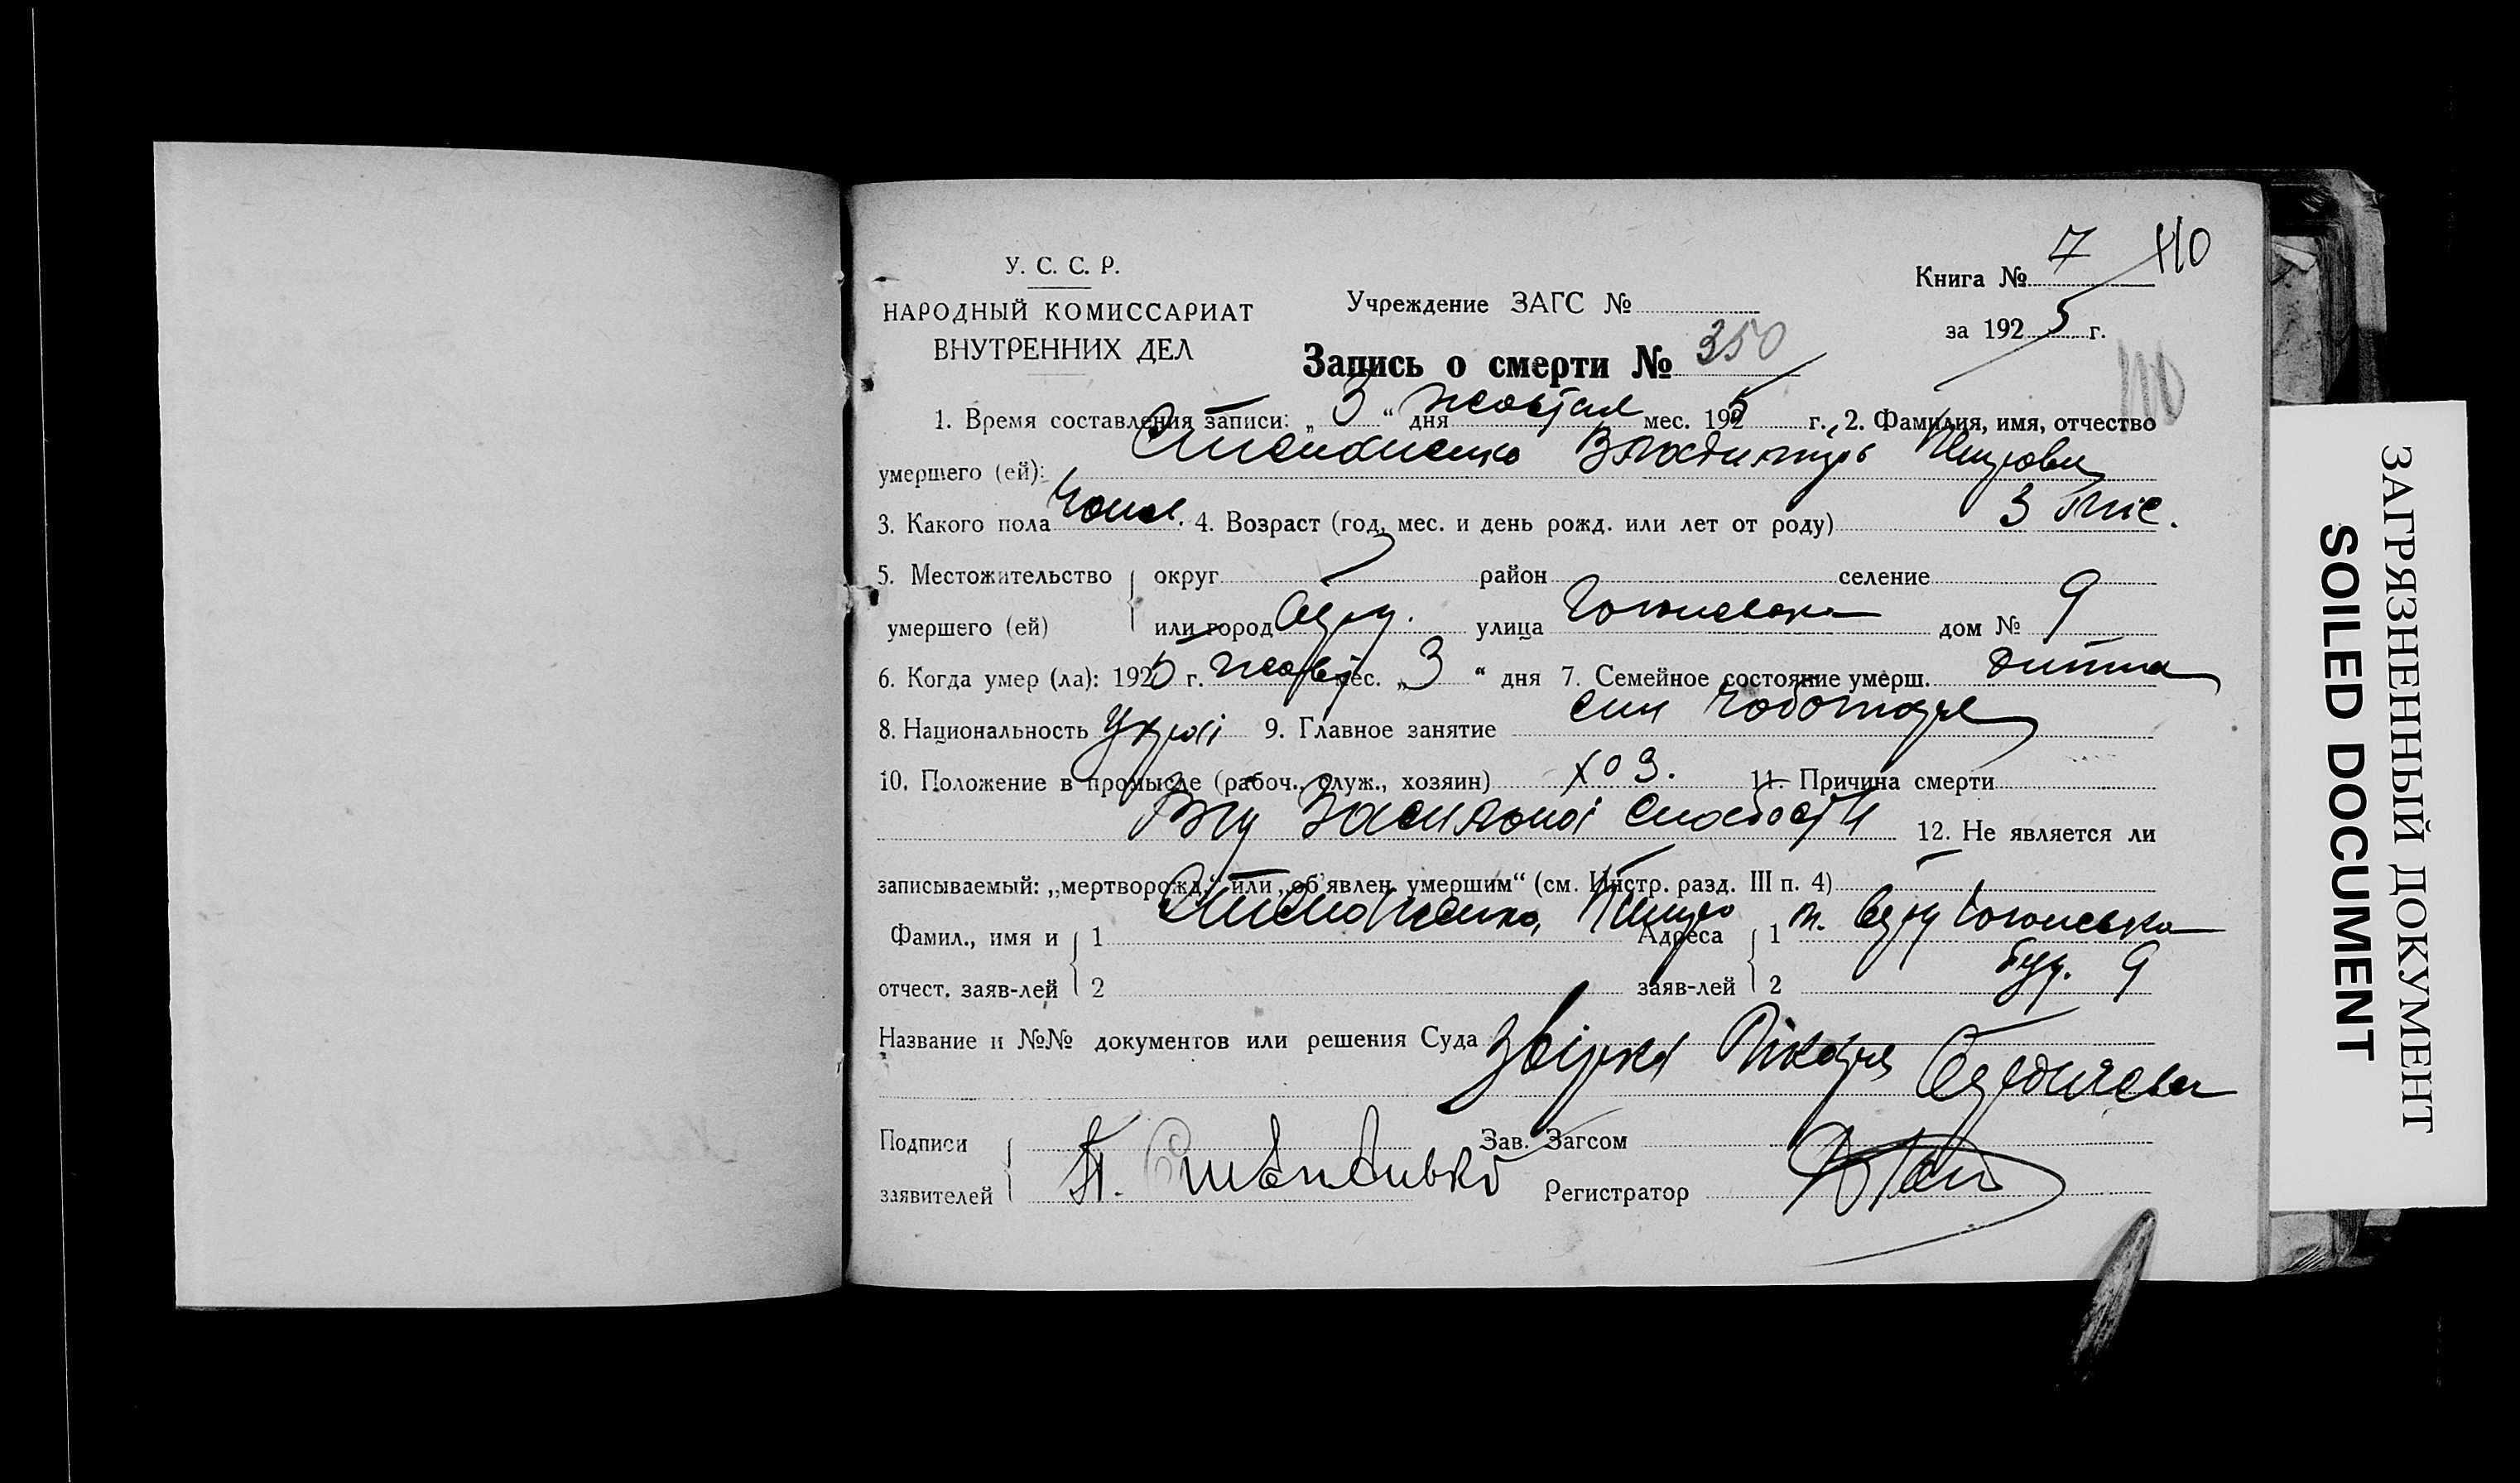 7 110
У. С. С. Р.
Книга №
НАРОДНЫЙ КОМИССАРИАТ
Учреждение ЗАГС №
за 1925 г.
ВНУТРЕННИХ ДЕЛ
Запись о смерти № 350
110
1. Время составления записи: „ 3 “ дня жовтня мес. 1925 г., 2. Фамилия, имя, отчество
умершего (ей): Степаненко Владимир Петрович
3. Какого пола чолов. 4. Возраст (год, мес. и день рожд. или лет от роду) 3 міс.
5. Местожительство округ район селение
умершего (ей) или город улица дом № 9
6. Когда умер (ла): 1925 г. жовт мес. „ 3 “ дня 7. Семейное состояние умерш. дитина
8. Национальность 9. Главное занятие син чоботаря
10. Положение в промысле (рабоч., служ., хозяин) хоз. 11. Причина смерти
Від слабости 12. Не является ли
записываемый: „мертворожд.“ или „об'явлен умершим“ (см. Инстр. разд. III п. 4)
Фамил., имя и 1 Степаненко Петро Адреса 1 м.
отчест. заяв-лей 2 заяв-лей 2 буд. 9
Название и №№ документов или решения Суда Лікаря
Подписи Зав. Загсом
заявителей П. Регистратор
ЗАГРЯЗНЕННЫЙ ДОКУМЕНТ
SOILED DOCUMENT